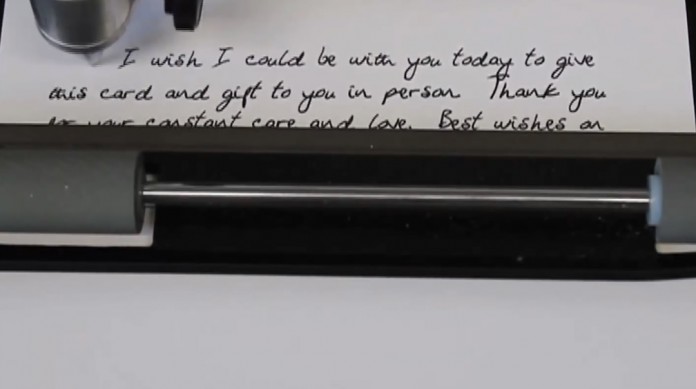 I wish I could be with you today to give
this card and gift to you in person Thank you
for your constant care and love. Best wishes on